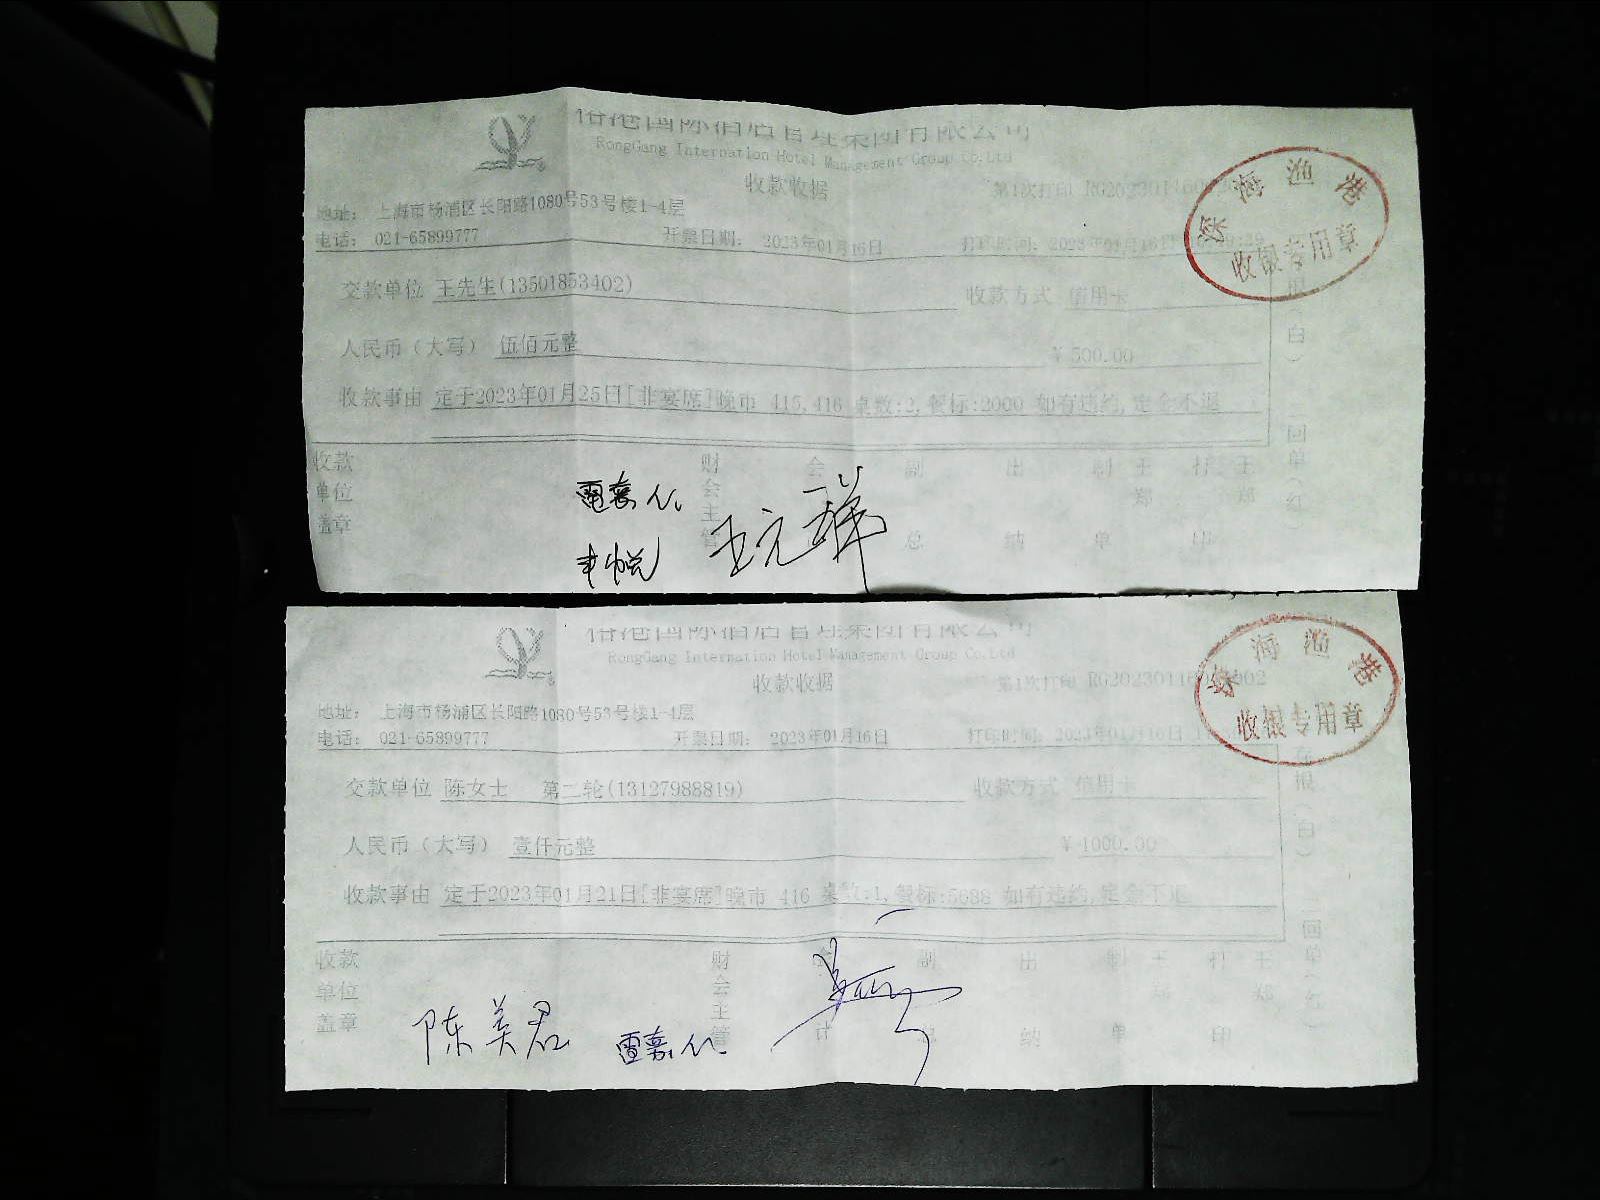 国际酒店管理集团有限公司
RongGang Internation Hotel Management Group Co.Ltd
收款收据
第1次打印
深海渔港
收银专用章
地址： 上海市杨浦区长阳路1080号53号楼1-4层
电话： 021-65899777 开票日期： 2023年01月16日 打印时间： 2023年01月16日
交款单位 王先生(13501853402) 收款方式 信用卡
人民币（大写） 伍佰元整 ¥ 500.00
收款事由 定于2023年01月25日[非宴席]晚市 415,416 桌数:2,餐标:2000 如有违约,定金不退
根（白） 二回单（红）
收款单位盖章 财会主管 会 副总 出纳 制单 王郑 打印 王郑
王元祥
国际酒店管理集团有限公司
RongGang Internation Hotel Management Group Co.Ltd
收款收据
第1次打印
深海渔港
收银专用章
地址： 上海市杨浦区长阳路1080号53号楼1-4层
电话： 021-65899777 开票日期： 2023年01月16日 打印时间： 2023年01月16日
交款单位 陈女士 第二轮(13127988819) 收款方式 信用卡
人民币（大写） 壹仟元整 ¥ 1000.00
收款事由 定于2023年01月21日[非宴席]晚市 416 桌数:1,餐标:5688 如有违约,定金不退
存根（白） 二回单（红）
收款单位盖章 财会主管 会计 副总 出纳 制单 王郑 打印 王郑
陈美君